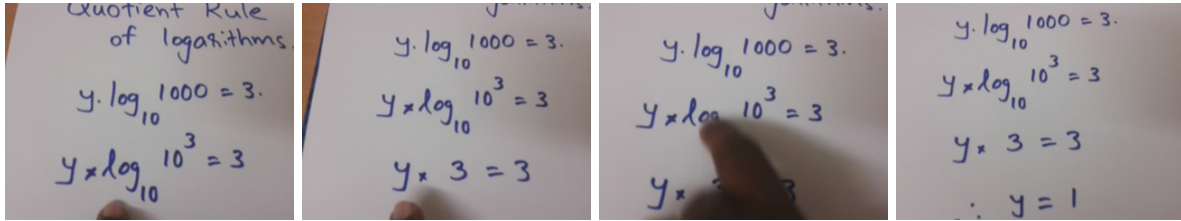 Quotient Rule
of logarithms.
y. log₁₀ 1000 = 3.
y × log₁₀ 10³ = 3
y. log₁₀ 1000 = 3.
y × log₁₀ 10³ = 3
y × 3 = 3
y. log₁₀ 1000 = 3.
y × log 10³ = 3
y × 3
y. log₁₀ 1000 = 3.
y × log₁₀ 10³ = 3
y × 3 = 3
∴ y = 1